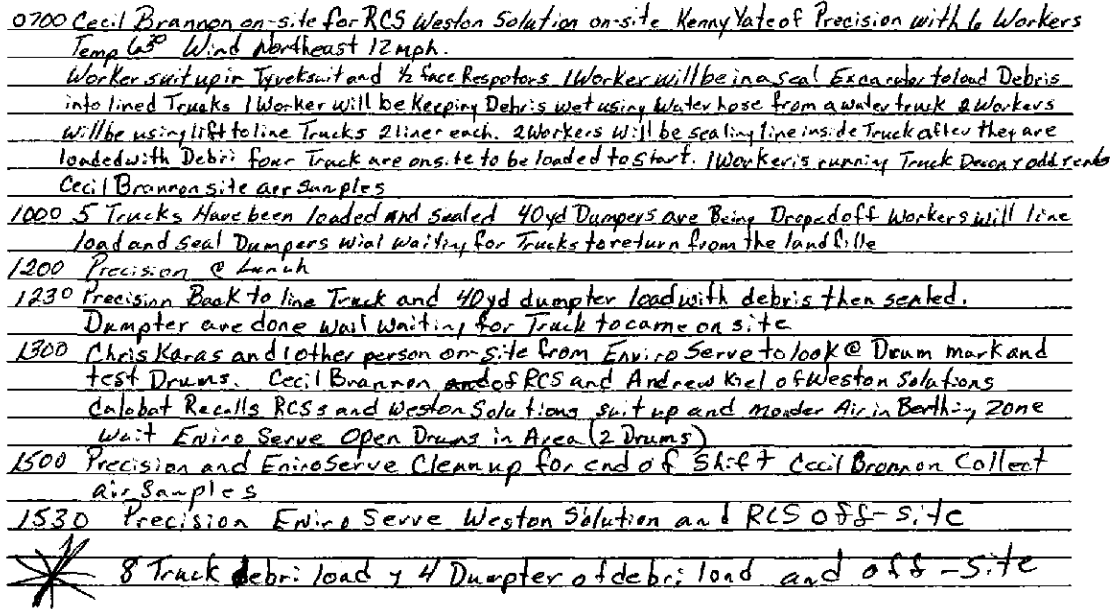 0700 Cecil Brannon on-site for RCS Weston Solution on-site Kenny Yate of Precision with 6 Workers
Temp 63° Wind Northeast 12 mph.
Worker suit up in Tyvek suit and ½ face Respotors 1 Worker will be in a seal Excavator to load Debris
into lined Trucks 1 Worker will be Keeping Debris wet using Water hose from a water truck 2 Workers
will be using lift to line Trucks 2 liner each. 2 Workers will be sealing line inside Truck after they are
loaded with Debri four Truck are onsite to be loaded to start. 1 Worker is running Truck Decon
Cecil Brannon site air Samples
1000 5 Trucks Have been loaded and Sealed 40yd Dumpers are Being Droped off Workers will line
load and seal Dumpers wial waiting for Trucks to return from the land fille
1200 Precision @ Lunch
1230 Precision Back to line Truck and 40yd dumpter load with debris then sealed.
Dumpter are done wail waiting for Truck to came on site
1300 Chris Karas and 1 other person on-site from Enviro Serve to look @ Drum mark and
test Drums. Cecil Brannon of RCS and Andrew Kiel of Weston Solutions
Calobat Recalls RCSs and Weston Solutions suit up and monder Air in Berthing Zone
Wait Enviro Serve Open Drums in Area (2 Drums)
1500 Precision and EniroServe Cleanup for end of Shift Cecil Brannon Collect
air Samples
1530 Precision Enviro Serve Weston Solution and RCS off-site
8 Truck debri load y 4 Dumpter of debri load and off-site